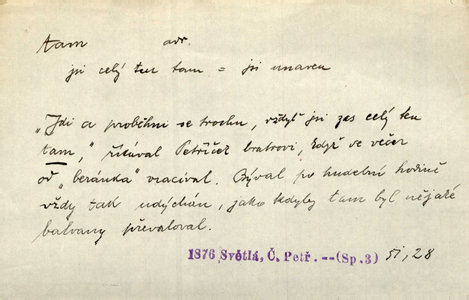 tam adv.
jsi celý ten tam = jsi unaven
„Jdi a proběhni se trochu, vždyť jsi zas celý ten
tam," říkával Petříček bratrovi, když se večer
od „beránka" vracíval. Býval po hudební hodině
vždy tak udýchán, jako kdyby tam byl nějaké
balvany převaloval.
1876 Světlá, Č. Petř. --(Sp.3) 51, 28